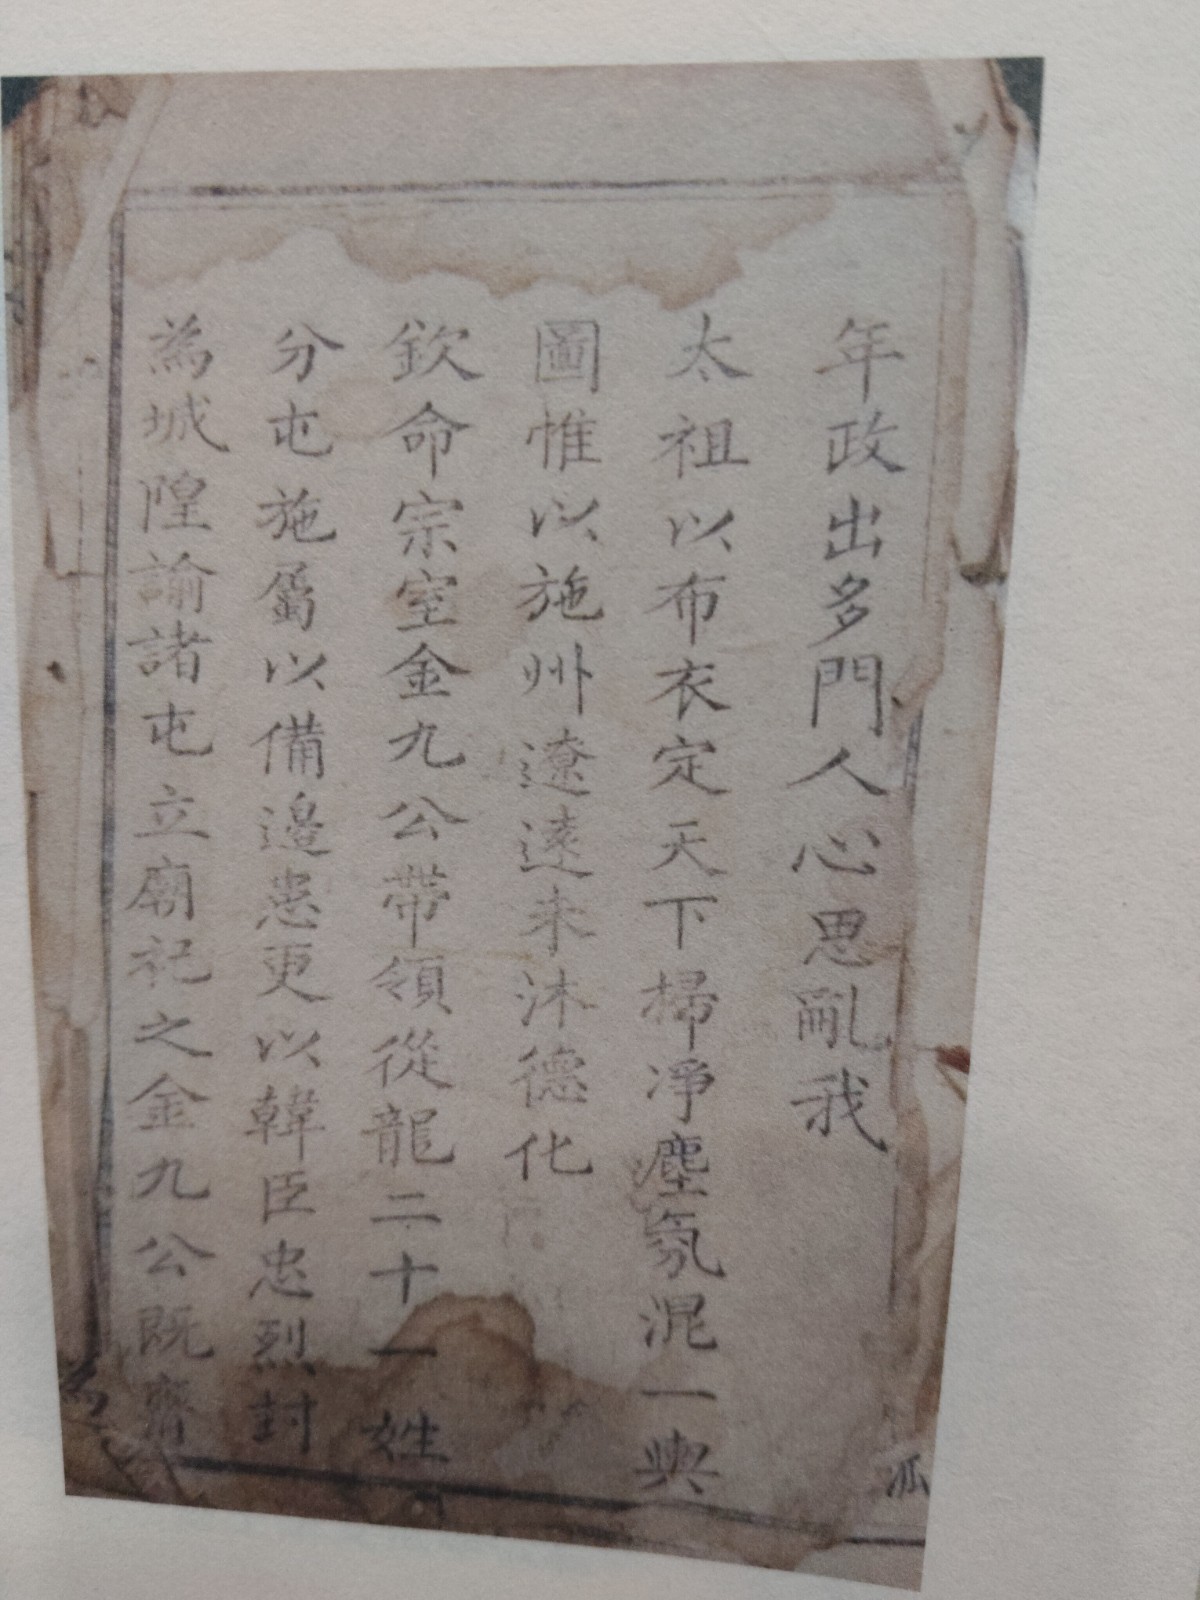 年政出多門人心思亂我
太祖以布衣定天下掃凈塵氛混一輿
圖惟以施州遼遠未沐德化
欽命宗室金九公帶領從龍二十一姓
分屯施屬以備邊患更以韓臣忠烈封
為城隍諭諸屯立廟祀之金九公既齎